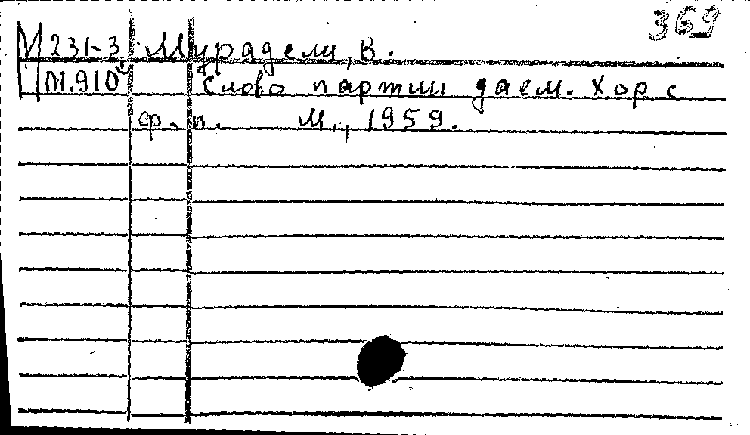 369
М 231-3 Мурадели, В.
М.910 Слово партии даем. Хор с
ф. п. М., 1959.